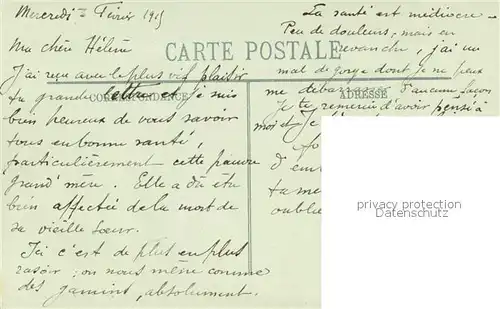 Mercredi Février 1915
Ma chère Hélène
CARTE POSTALE
J'ai reçu avec le plus vif plaisir
ta grande lettre et je suis
CORRESPONDANCE
bien heureux de vous savoir
tous en bonne santé,
particulièrement cette pauvre
grand'mère. Elle a dû être
bien affectée de la mort de
sa vieille sœur.
Ici c'est de plus en plus
rasoir; on nous mène comme
des gamins, absolument.
La santé est médiocre -
Peu de douleurs, mais en
revanche, j'ai un
mal de gorge dont je ne peux
me débarrasser d'aucune façon
ADRESSE
Je te remercie d'avoir pensé à
moi et je
d'em
ta me
oublie
privat
Datenschutz.org